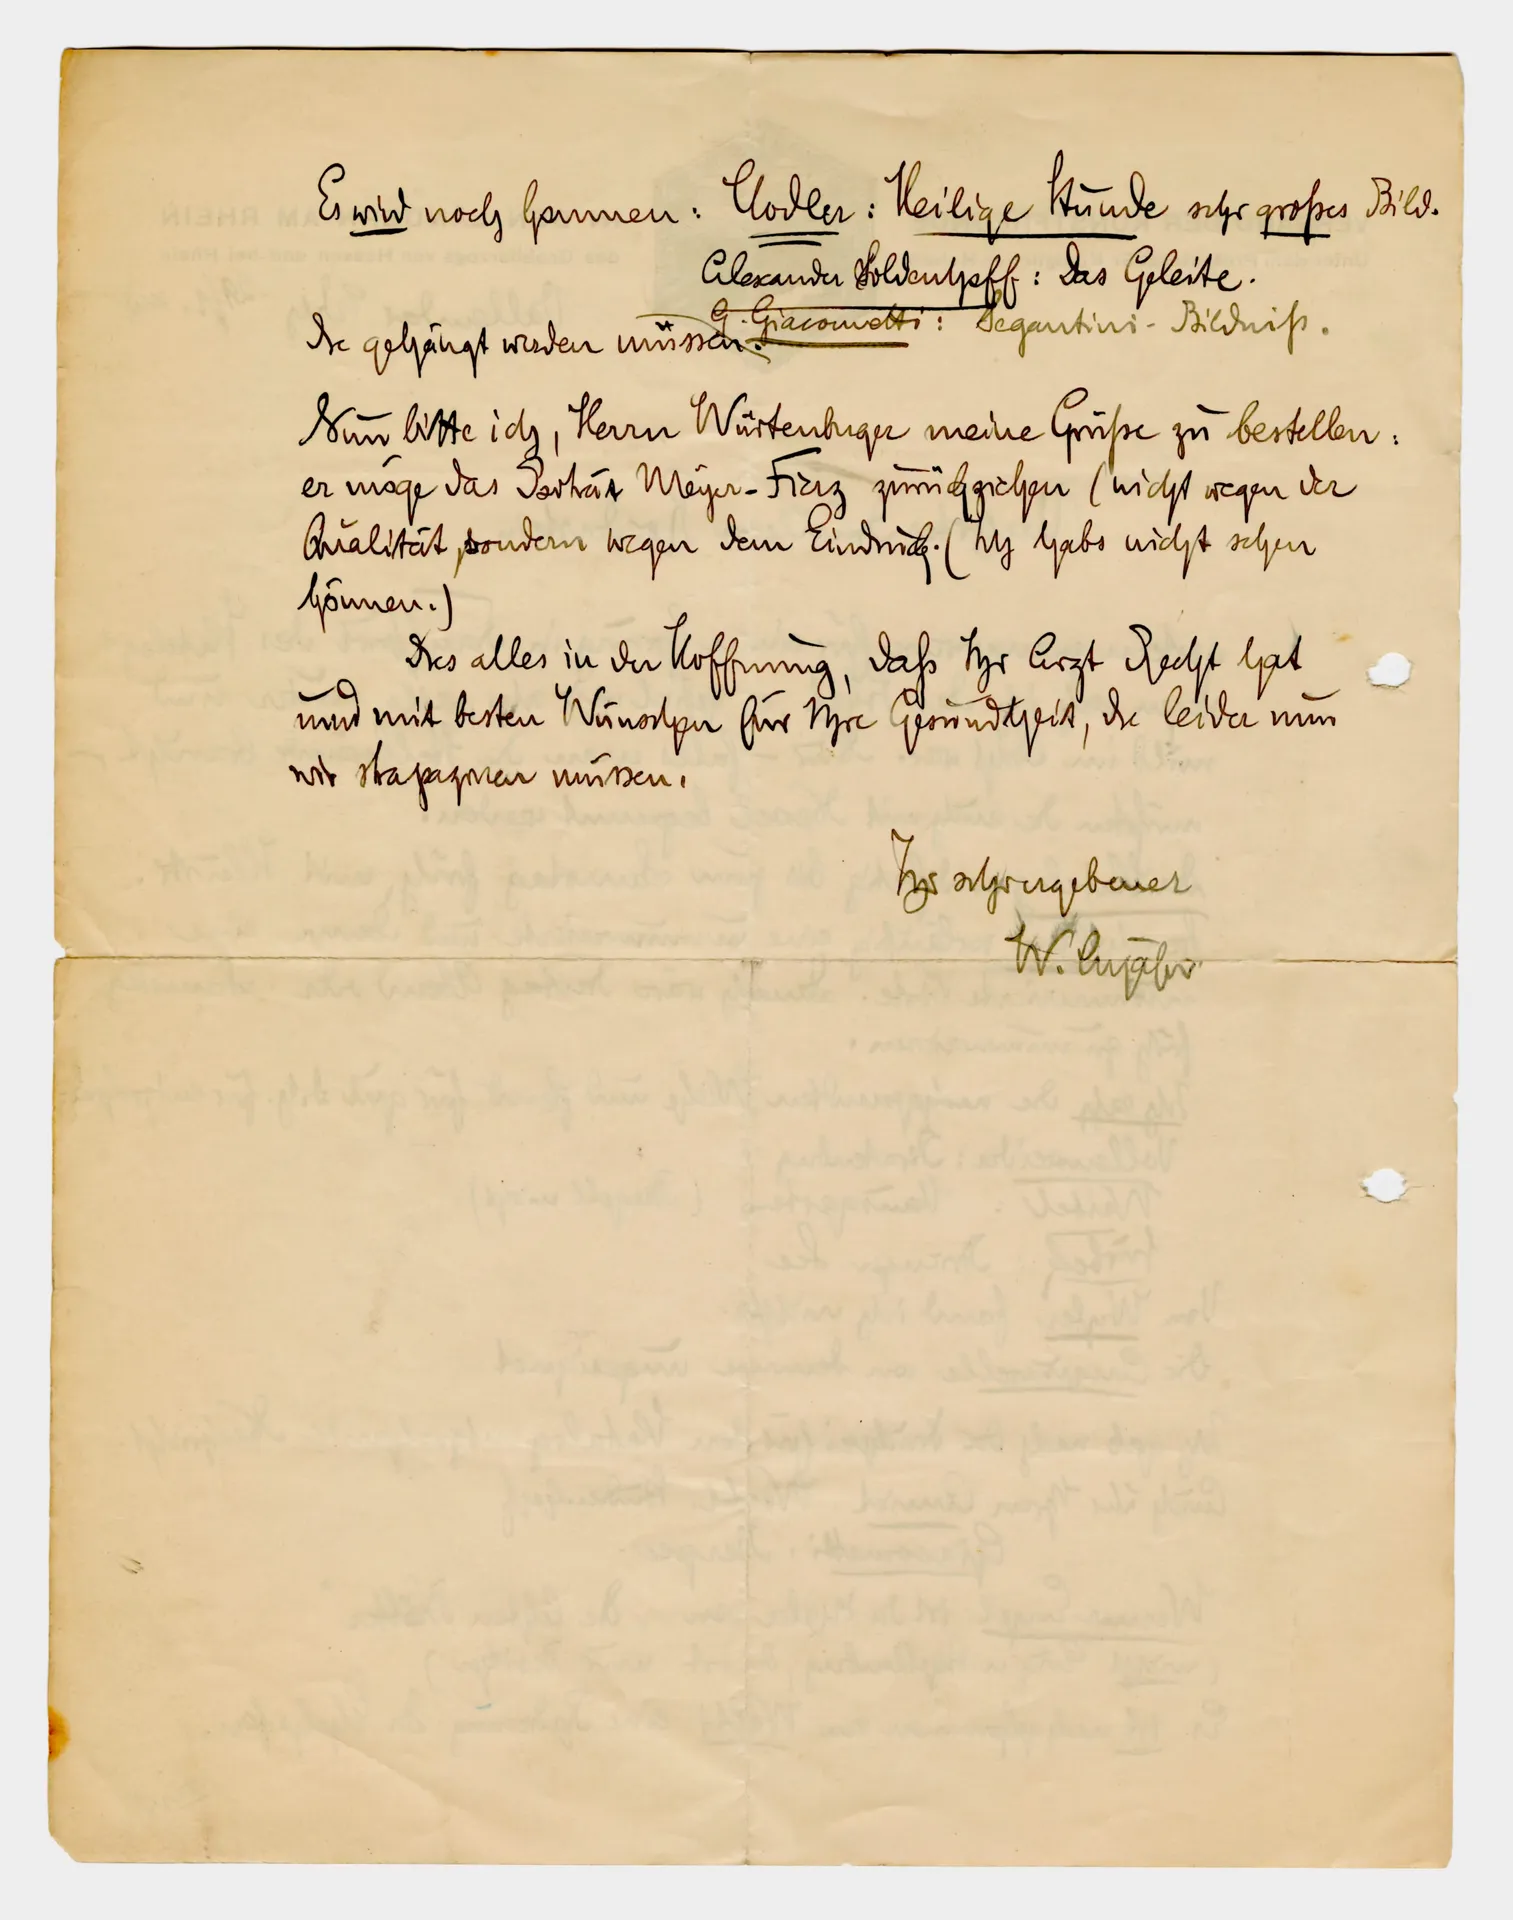 Es wird noch kommen: Hodler: Heilige Stunde sehr großes Bild.
Alexander Soldenhoff: Das Geleite.
G. Giacometti: Segantini-Bildniß.
die gehängt werden müssen.
Nun bitte ich, Herrn Würtenberger meine Grüße zu bestellen:
er möge das Porträt Meyer-Fierz zurückziehen (nicht wegen der
Qualität, sondern wegen dem Eindruck. (Ich habs nicht sehen
können.)
Dies alles in der Hoffnung, daß Ihr Arzt Recht hat
und mit besten Wünschen für Ihre Gesundheit, die leider nun
wir strapazieren müssen.
Ihr sehr ergebener
W.